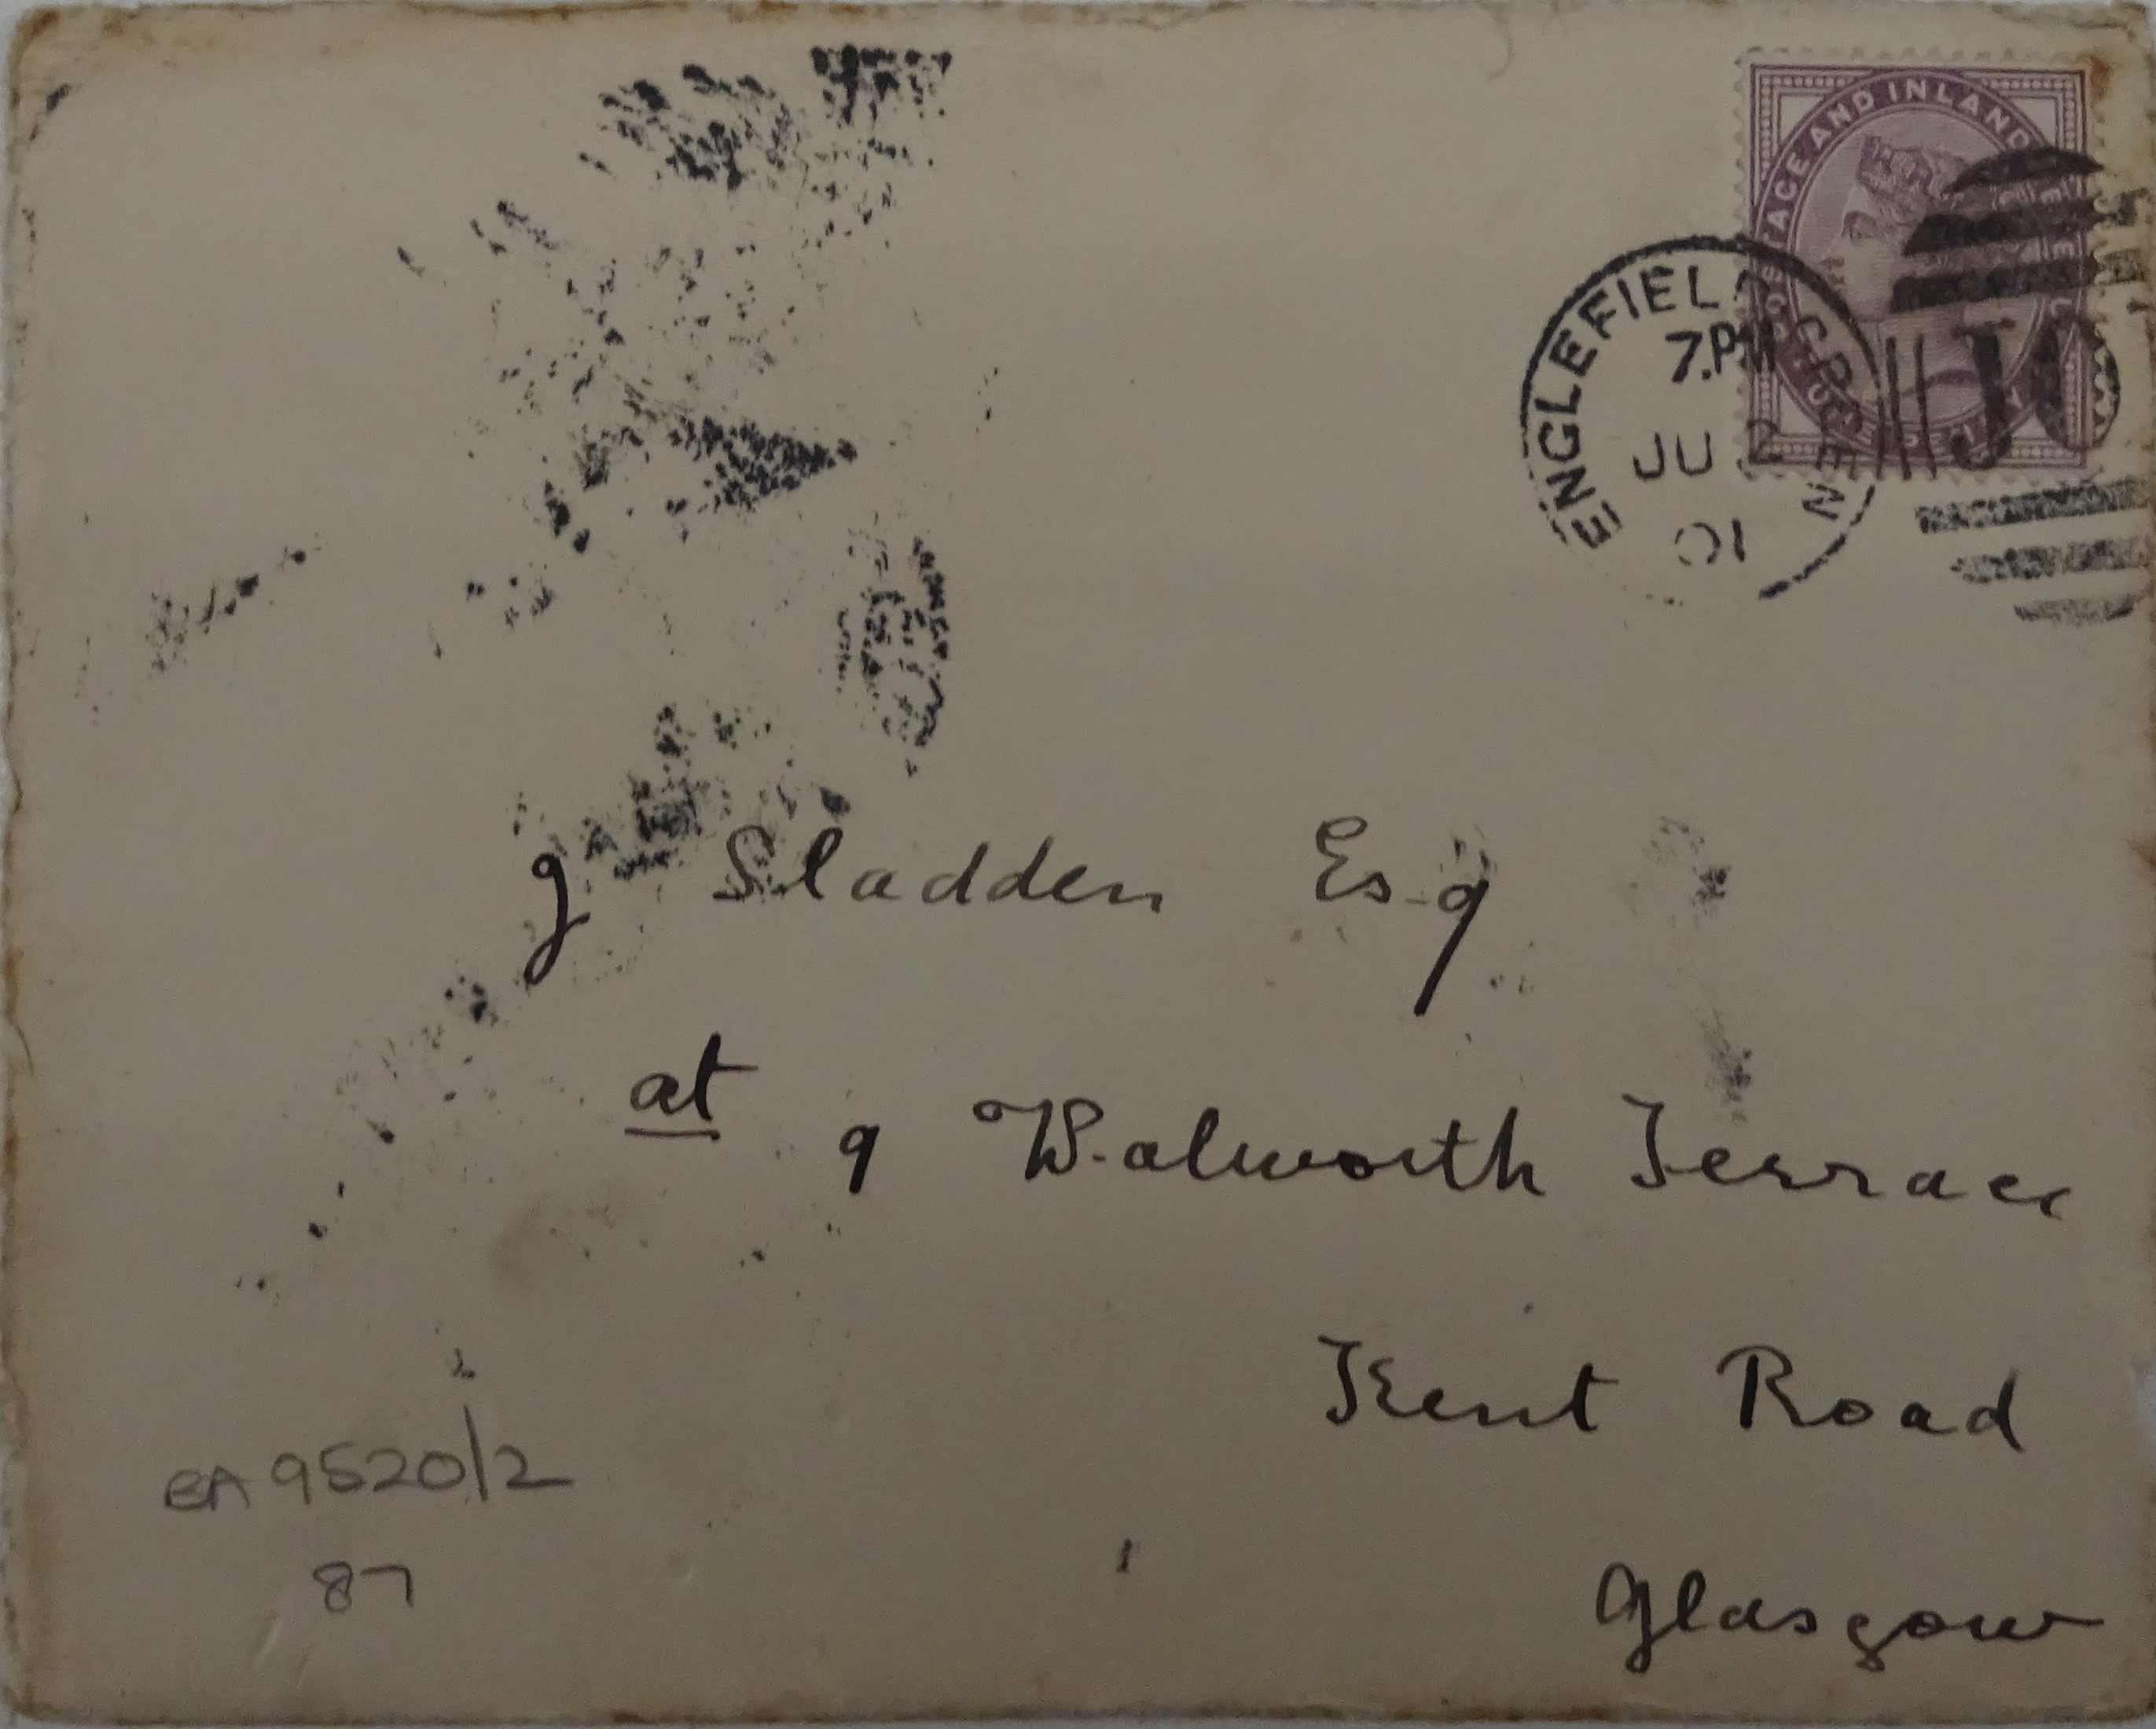 POSTAGE AND INLAND REVENUE
ENGLEFIELD GREEN
7.PM
JU 2
01
J Sladden Esq
at 9 Walworth Terrace
Kent Road
Glasgow
EA 9520/2
87